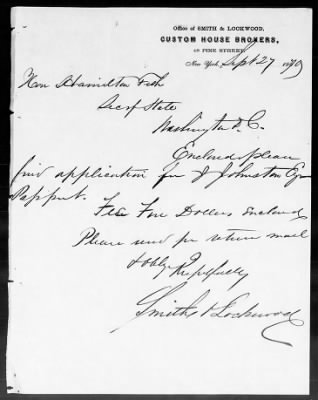 Office of SMITH & LOCKWOOD,
CUSTOM HOUSE BROKERS,
PINE STREET,
New York, Sept 27 1870
Hon Hamilton Fish
Sec of State
Washington D.C.
Enclosed please
find application for J Johnston
Passport. Fee Five Dollars Enclosed
Please send per return mail
& oblige Respectfully
Smith & Lockwood